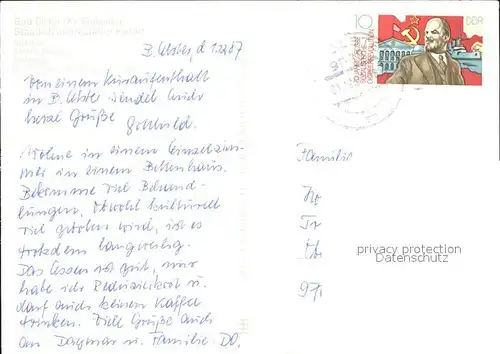 Bad Elster
B. Elster, d. 1.2.87
10
DDR
Von einem Kuraufenthalt
in B. Elster sendet Euch
herzl Grüße
Gotthold.
Familie
Wohne in einem Einzelzim-
mer in einem Bettenhaus.
Bekomme viel Behand-
lungen. Obwohl kulturell
viel geboten wird, ist es
trotzdem langweilig.
Das Essen ist gut, nur
habe ich Reduzierkost u.
darf auch keinen Kaffee
trinken. Viele Grüße auch
an Dagmar u. Familie. D.O.
privacy protection
Datenschutz